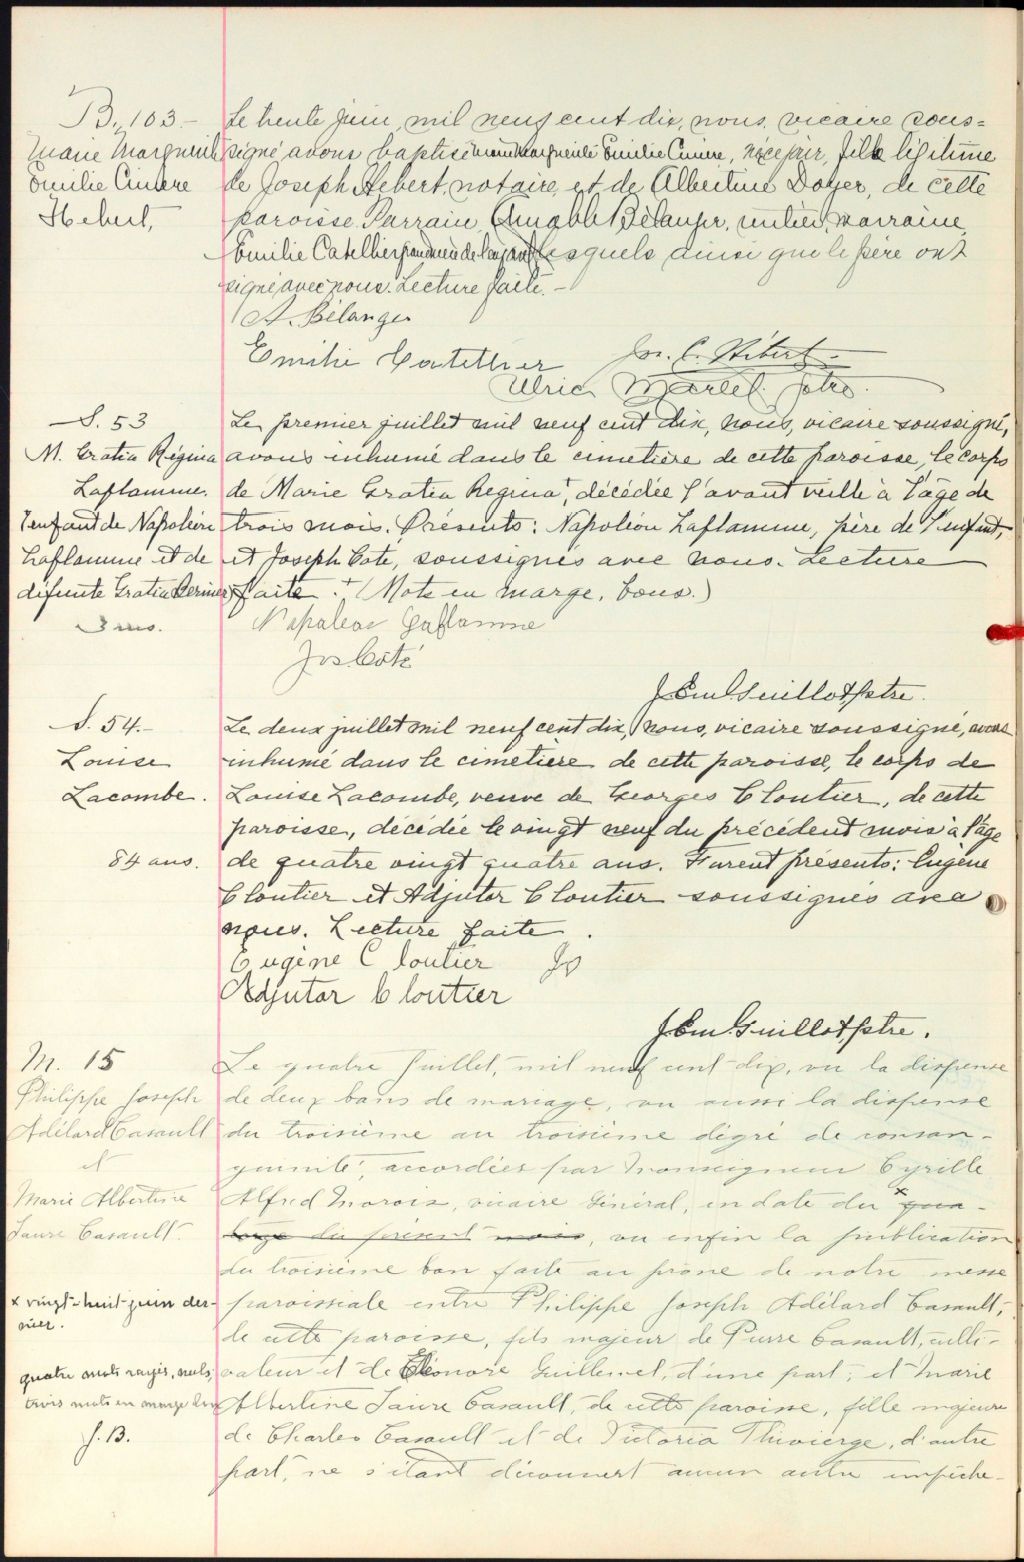 B. 103.-
Marie Marguerite
Emilie Cimere
Hebert,
Le trente juin, mil neuf cent dix, nous, vicaire sous=
signé avons baptisé marie marguerite Emilie Cimere, née ce jour, fille légitime
de Joseph Hebert, notaire, et de Albertine Doyer, de cette
paroisse. Parrain, Amable Bélanger, marraine,
Emilie Catellier lesquels ainsi que le père ont
signé avec nous. Lecture faite.-
A. Bélanger
Emilie Catellier
Jos. C. Hébert
Ulric Martel ptre.
S. 53
M. Gratia Régina
Laflamme.
l'enfant de Napoléon
Laflamme et de
défunte Gratia Bernier
3 ms.
Le premier juillet mil neuf cent dix, nous, vicaire soussigné,
avons inhumé dans le cimetière de cette paroisse, le corps
de Marie Gratia Regina†, décédée l'avant veille à l'âge de
trois mois. Présents: Napoléon Laflamme, père de l'enfant,
et Joseph Coté, soussignés avec nous. Lecture
faite. † (Mots en marge, bons.)
Napoleon Laflamme
Jos Coté
J Em Guillot ptre.
S. 54.-
Louise
Lacombe.
84 ans.
Le deux juillet mil neuf cent dix, nous, vicaire soussigné, avons
inhumé dans le cimetière de cette paroisse, le corps de
Louise Lacombe, veuve de Georges Cloutier, de cette
paroisse, décédée le vingt neuf du précédent mois à l'âge
de quatre vingt quatre ans. Furent présents: Eugène
Cloutier et Adjutor Cloutier soussignés avec
nous. Lecture faite.
Eugène Cloutier
Adjutor Cloutier
J Em Guillot ptre.
M. 15
Philippe Joseph
Adélard Casault
et
Marie Albertine
Laure Casault.
x vingt-huit juin der-
nier.
quatre mots rayés, nuls,
trois mots en marge bons
J. B.
Le quatre Juillet, mil neuf cent dix, vu la dispense
de deux bans de mariage, vu aussi la dispense
du troisième au troisième dégré de consan-
guinité, accordées par Monseigneur Cyrille
Alfred Marois, vicaire Général, en date du x qua-
torze du présent mois, vu enfin la publication
du troisième ban faite au prone de notre messe
paroissiale entre Philippe Joseph Adélard Casault,
de cette paroisse, fils majeur de Pierre Casault, culti-
vateur et de Eléonore Guillemet, d'une part; et Marie
Albertine Laure Casault, de cette paroisse, fille majeure
de Charles Casault et de Victoria Thivierge, d'autre
part, ne s'étant découvert aucun autre empêche-